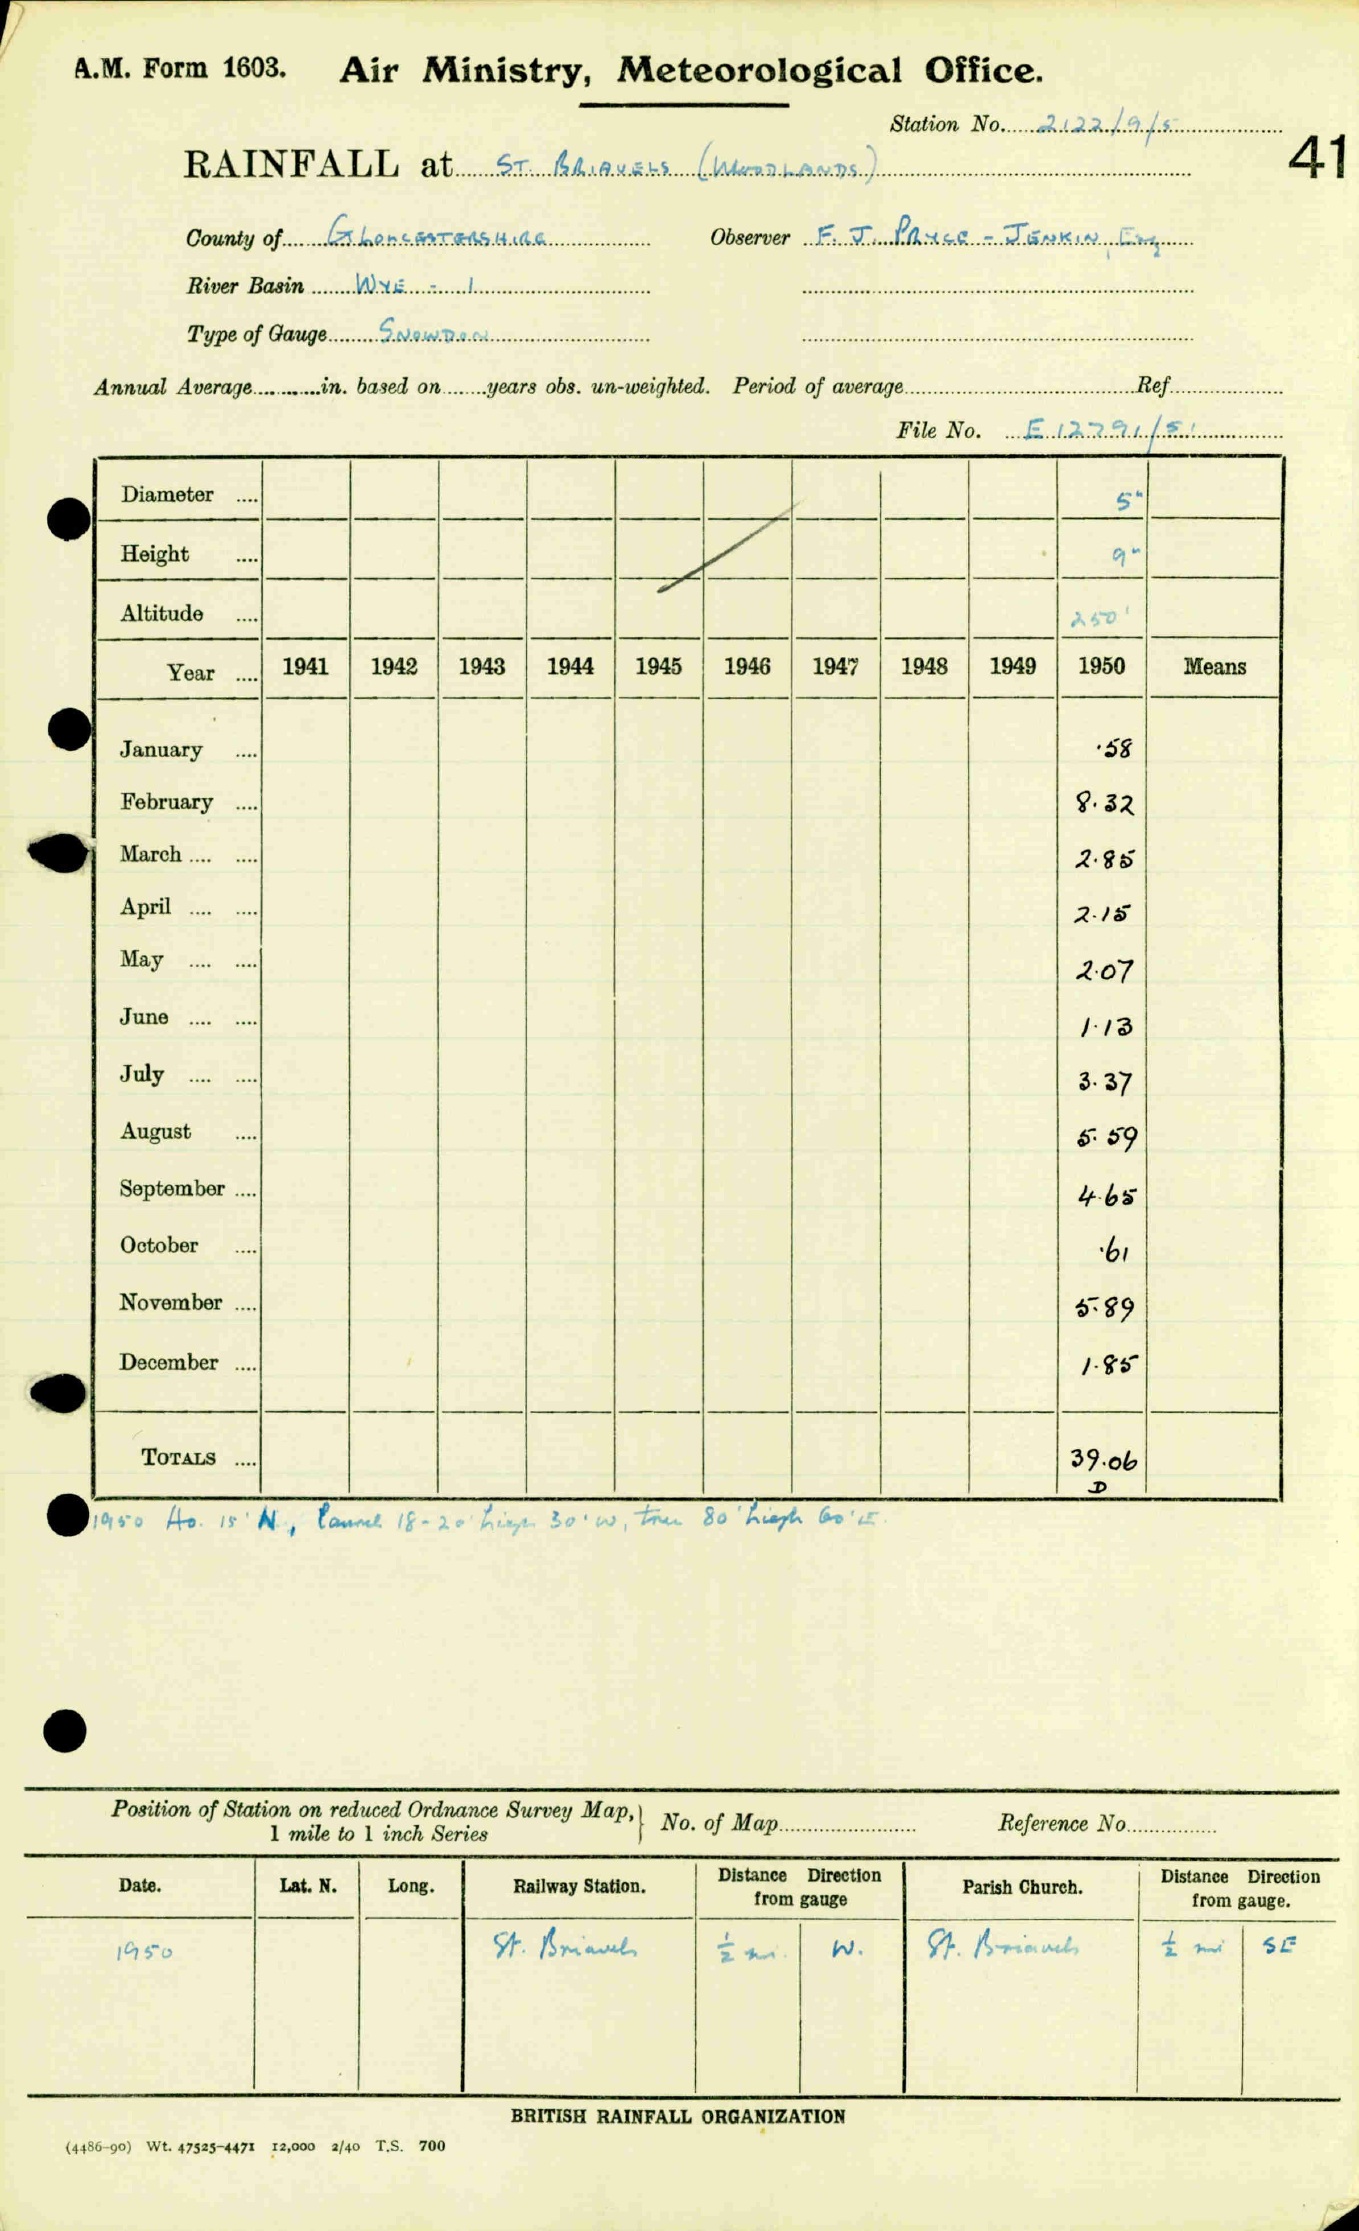 A.M. Form 1603. Air Ministry, Meteorological Office.
Station No. 2122/9/5
41
RAINFALL at ST. BRIAVELS (WOODLANDS)
County of GLOUCESTERSHIRE Observer F. J. PRYCE - JENKIN, Esq
River Basin WYE - 1
Type of Gauge SNOWDON
Annual Average in. based on years obs. un-weighted. Period of average Ref.
File No. E 12791/51
Diameter 5"
Height 9"
Altitude 250'
Year 1941 1942 1943 1944 1945 1946 1947 1948 1949 1950 Means
January ·58
February 8·32
March 2·85
April 2·15
May 2·07
June 1·13
July 3·37
August 5·59
September 4·65
October ·61
November 5·89
December 1·85
TOTALS 39·06
D
1950 Ho. 15' N, laurel 18-20' high 30' W, tree 80' high 60' E.
Position of Station on reduced Ordnance Survey Map, } No. of Map Reference No.
1 mile to 1 inch Series
Date. Lat. N. Long. Railway Station. Distance Direction from gauge Parish Church. Distance Direction from gauge.
1950 St. Briavels ½ mi. W. St. Briavels ½ mi SE
BRITISH RAINFALL ORGANIZATION
(4486-90) Wt. 47525-4471 12,000 2/40 T.S. 700